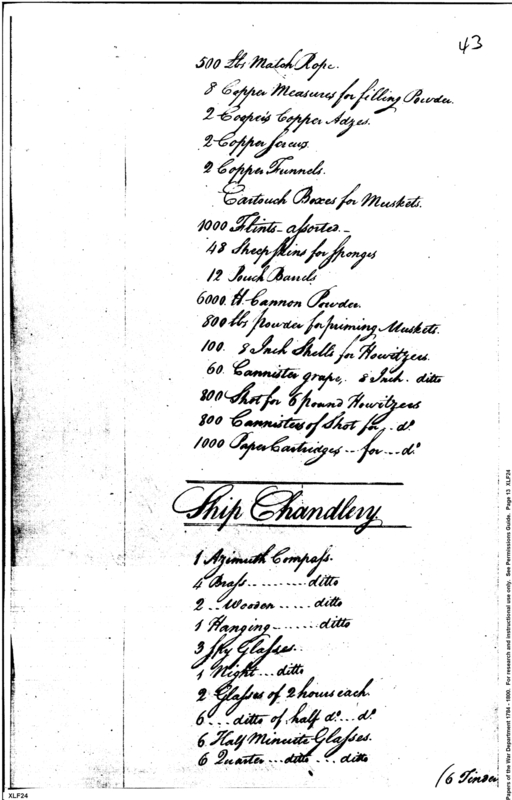 43
500 lbs Match Rope.
8 Copper Measures for filling Powder.
2 Cooper's Copper Adzes.
2 Copper Screws
2 Copper Funnels.
Cartouch Boxes for Muskets.
1000 Flints - assorted -
48 Sheep Skins for Sponges
12 Pouch Barrels
6000 lt. Cannon Powder.
800 lbs powder for priming Muskets.
100. 8 Inch Shells for Howitzers.
60. Cannister grape, 8 Inch. ditto
800 Shot for 6 pound Howitzers
800 Cannisters of Shot for .. do.
1000 Paper Cartridges ... for ... do.
Ship Chandlery
1 Azimuth Compass.
4 Brass ........... ditto
2 .. Wooden ..... ditto
1 Hanging ........ ditto
3 Sky Glasses.
1 Night ... ditto
2 Glasses of 2 hours each.
6 ... ditto of half do... do.
6 Half Minute Glasses.
6 Quarter ... ditto ... ditto
(6 Tinder
Papers of the War Department 1784 - 1800. For research and instructional use only. See Permissions Guide. Page 13 XLF24
XLF24